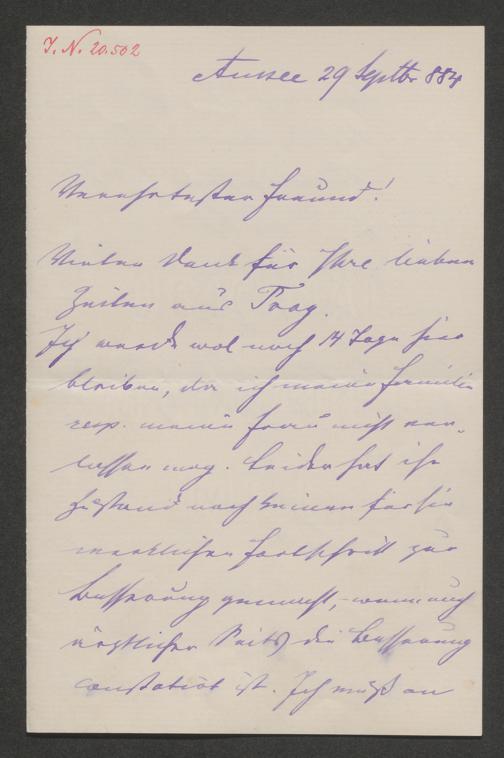 I. N. 20.502
Aussee 29 Septbr 884
Verehrtester Freund!
Vielen Dank für Ihre lieben
Zeilen aus Prag.
Ich werde wol noch 14 Tage hier
bleiben, da ich meine Familie
resp. meine Frau nicht ver-
lassen mag. Leider hat ihr
Zustand noch keinen für sie
merklichen Fortschritt zur
Besserung gemacht, wenn auch
ärztlicher Seits die Besserung
constatirt ist. Ich muß an